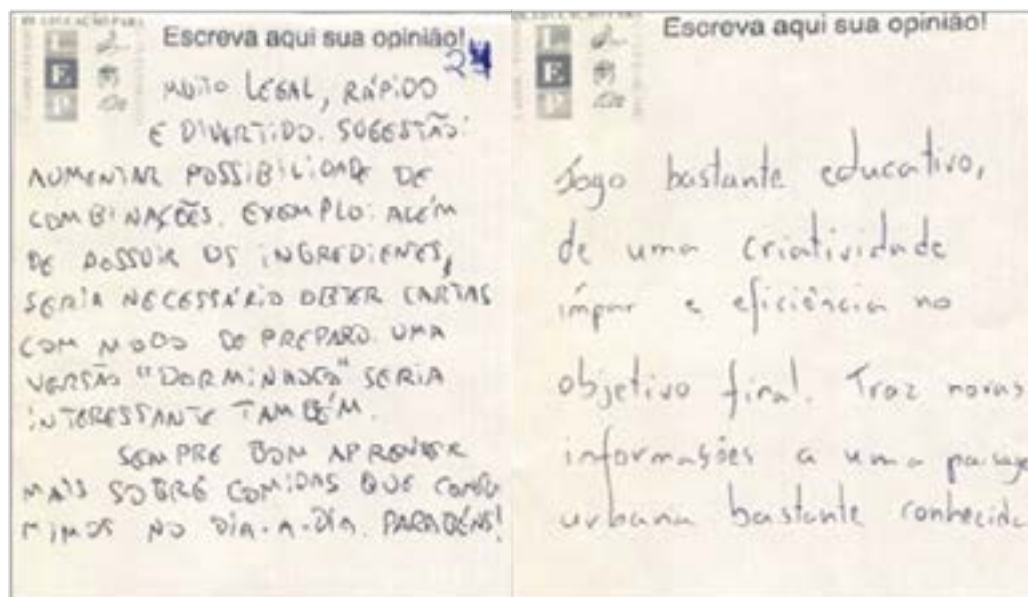 Escreva aqui sua opinião!
MUITO LEGAL, RÁPIDO
E DIVERTIDO. SUGESTÃO:
AUMENTAR POSSIBILIDADE DE
COMBINAÇÕES. EXEMPLO: ALÉM
DE POSSUIR OS INGREDIENES,
SERIA NECESSÁRIO OBTER CARTAS
COM MODO DE PREPARO. UMA
VERSÃO "DORMINHOCO" SERIA
INTERESSANTE TAMBÉM.
SEMPRE BOM APRENDER
MAIS SOBRE COMIDAS QUE CONSU
MIMOS NO DIA-A-DIA. PARABÉNS!
Escreva aqui sua opinião!
Jogo bastante educativo,
de uma criatividade
ímpar e eficiência no
objetivo final. Traz novas
informações a uma paisage
urbana bastante conhecida